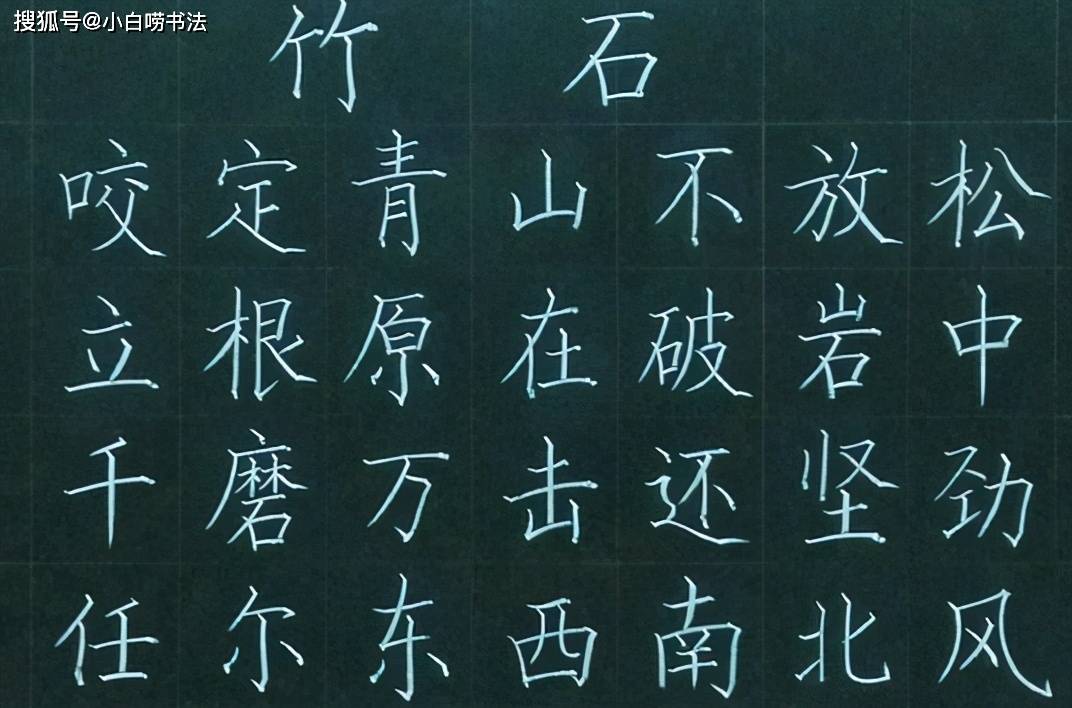 搜狐号@小白唠书法
竹石
咬定青山不放松
立根原在破岩中
千磨万击还坚劲
任尔东西南北风